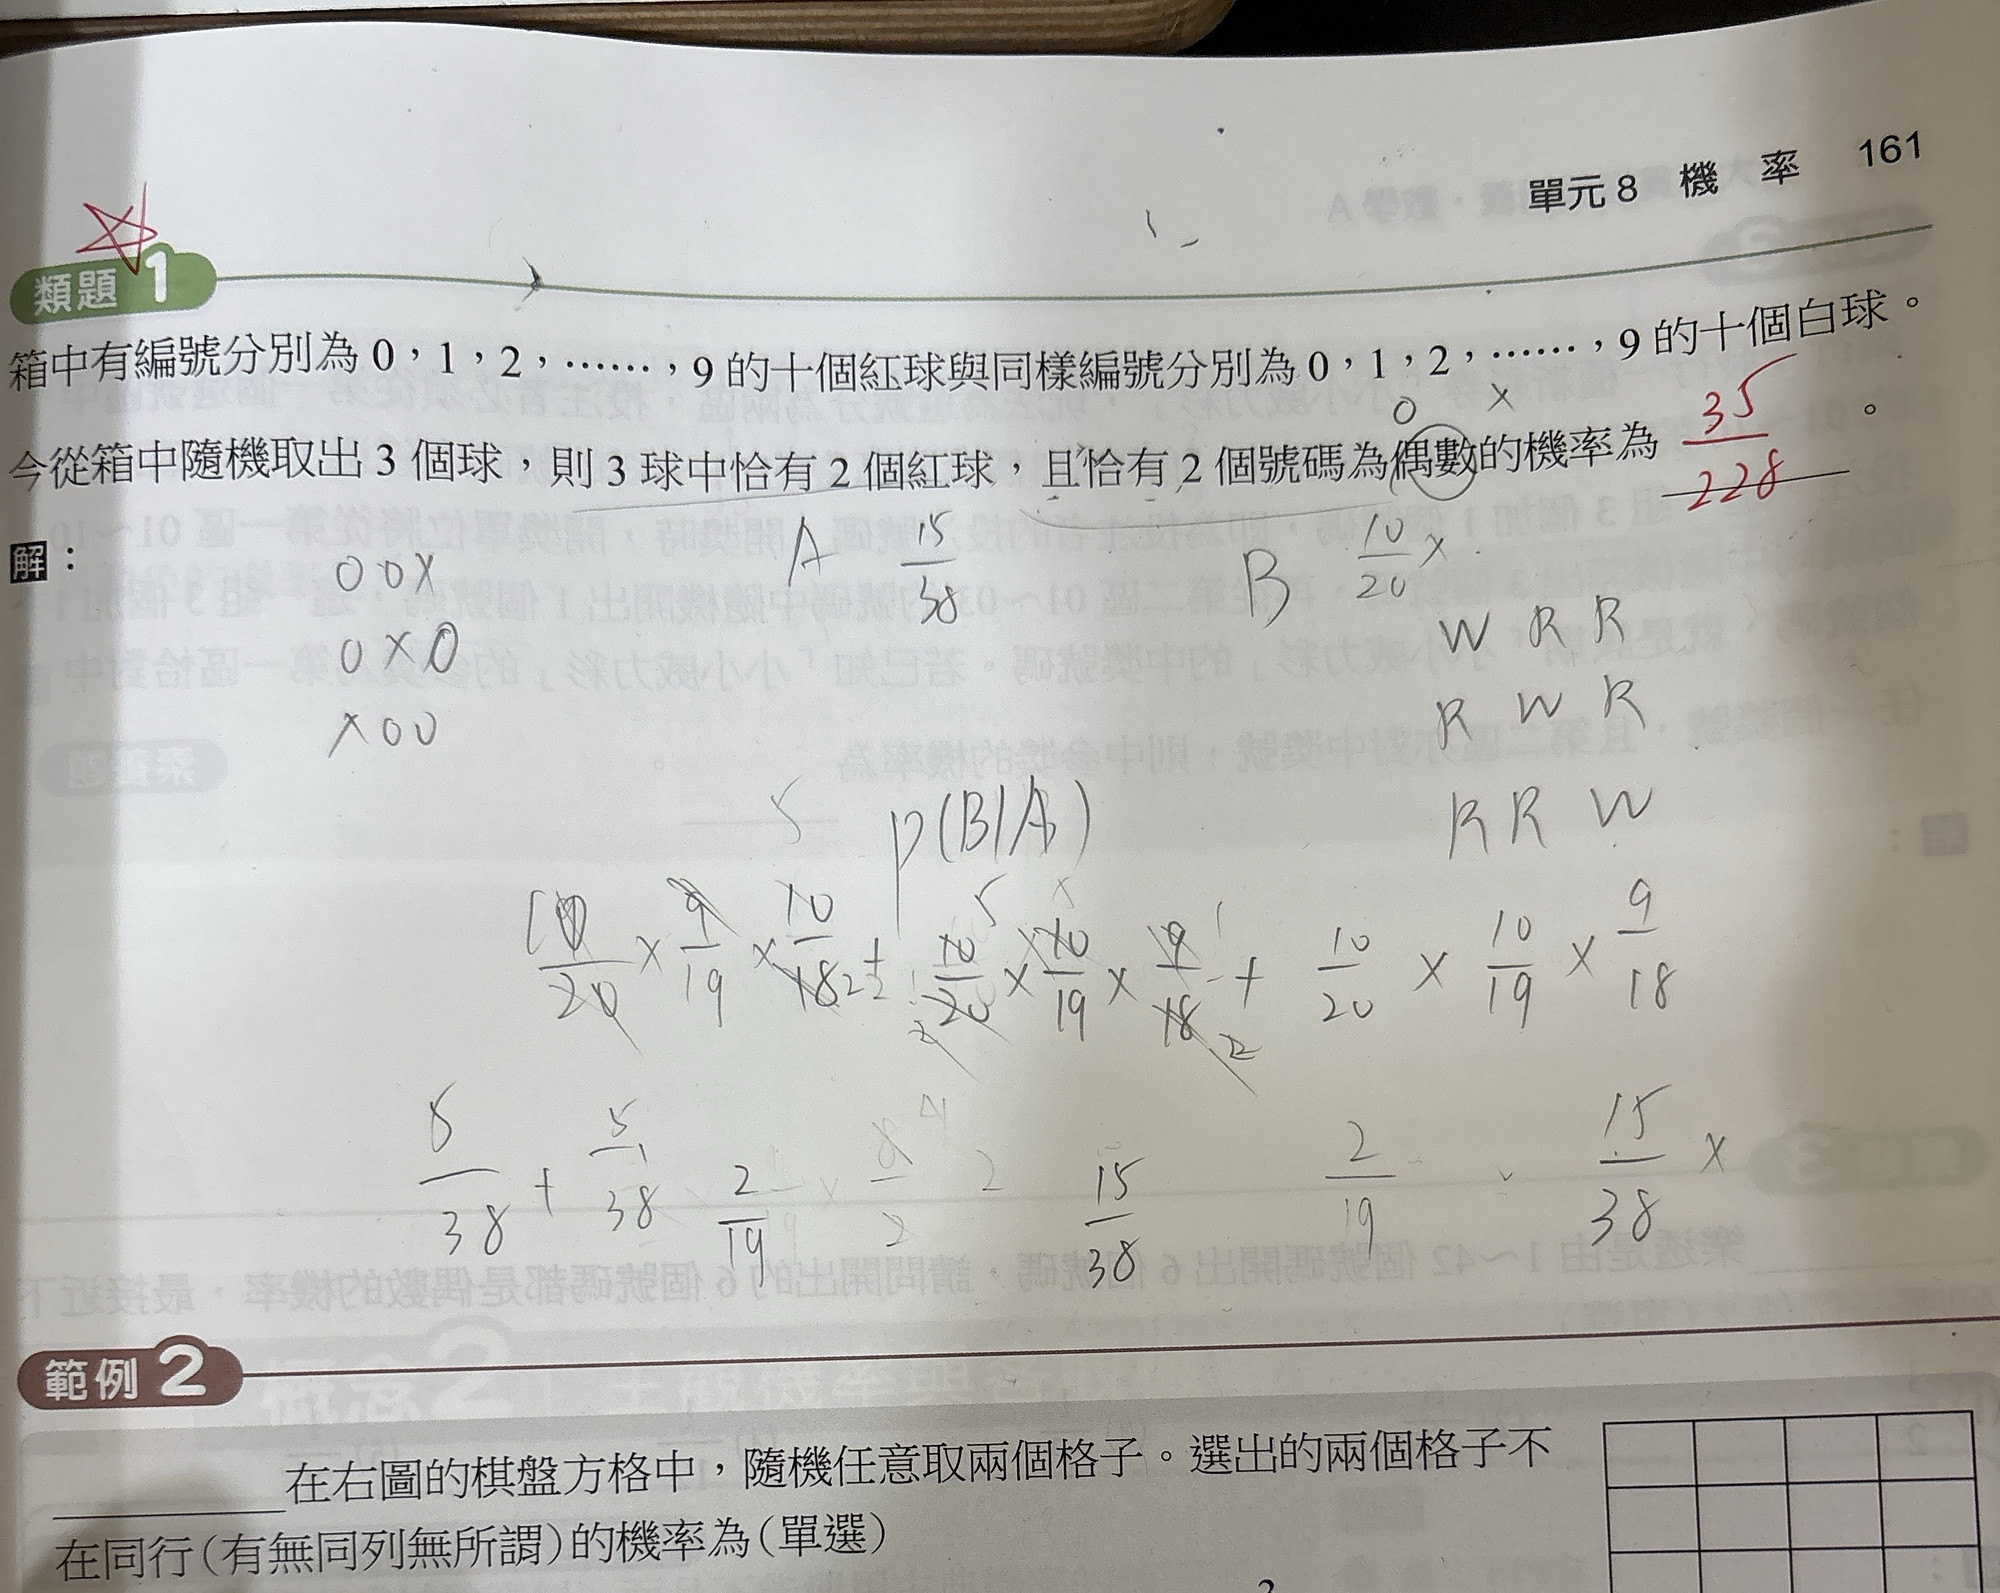 單元8 機 率 161
類題1
箱中有編號分別為0,1,2,……,9的十個紅球與同樣編號分別為0,1,2,……,9的十個白球。
0 ×
今從箱中隨機取出3個球,則3球中恰有2個紅球,且恰有2個號碼為偶數的機率為 35/228 。
解:
00× A 15/38 B 10/20 ×
W R R
0×0
×00 R W R
5 P(B|A) R R W
10/20 × 9/19 × 10/18 + 10/20 × 10/19 × 9/18 + 10/20 × 10/19 × 9/18
5/38 + 5/38 2/19 15/38 2/19 15/38 ×
範例2
在右圖的棋盤方格中,隨機任意取兩個格子。選出的兩個格子不
在同行(有無同列無所謂)的機率為(單選)